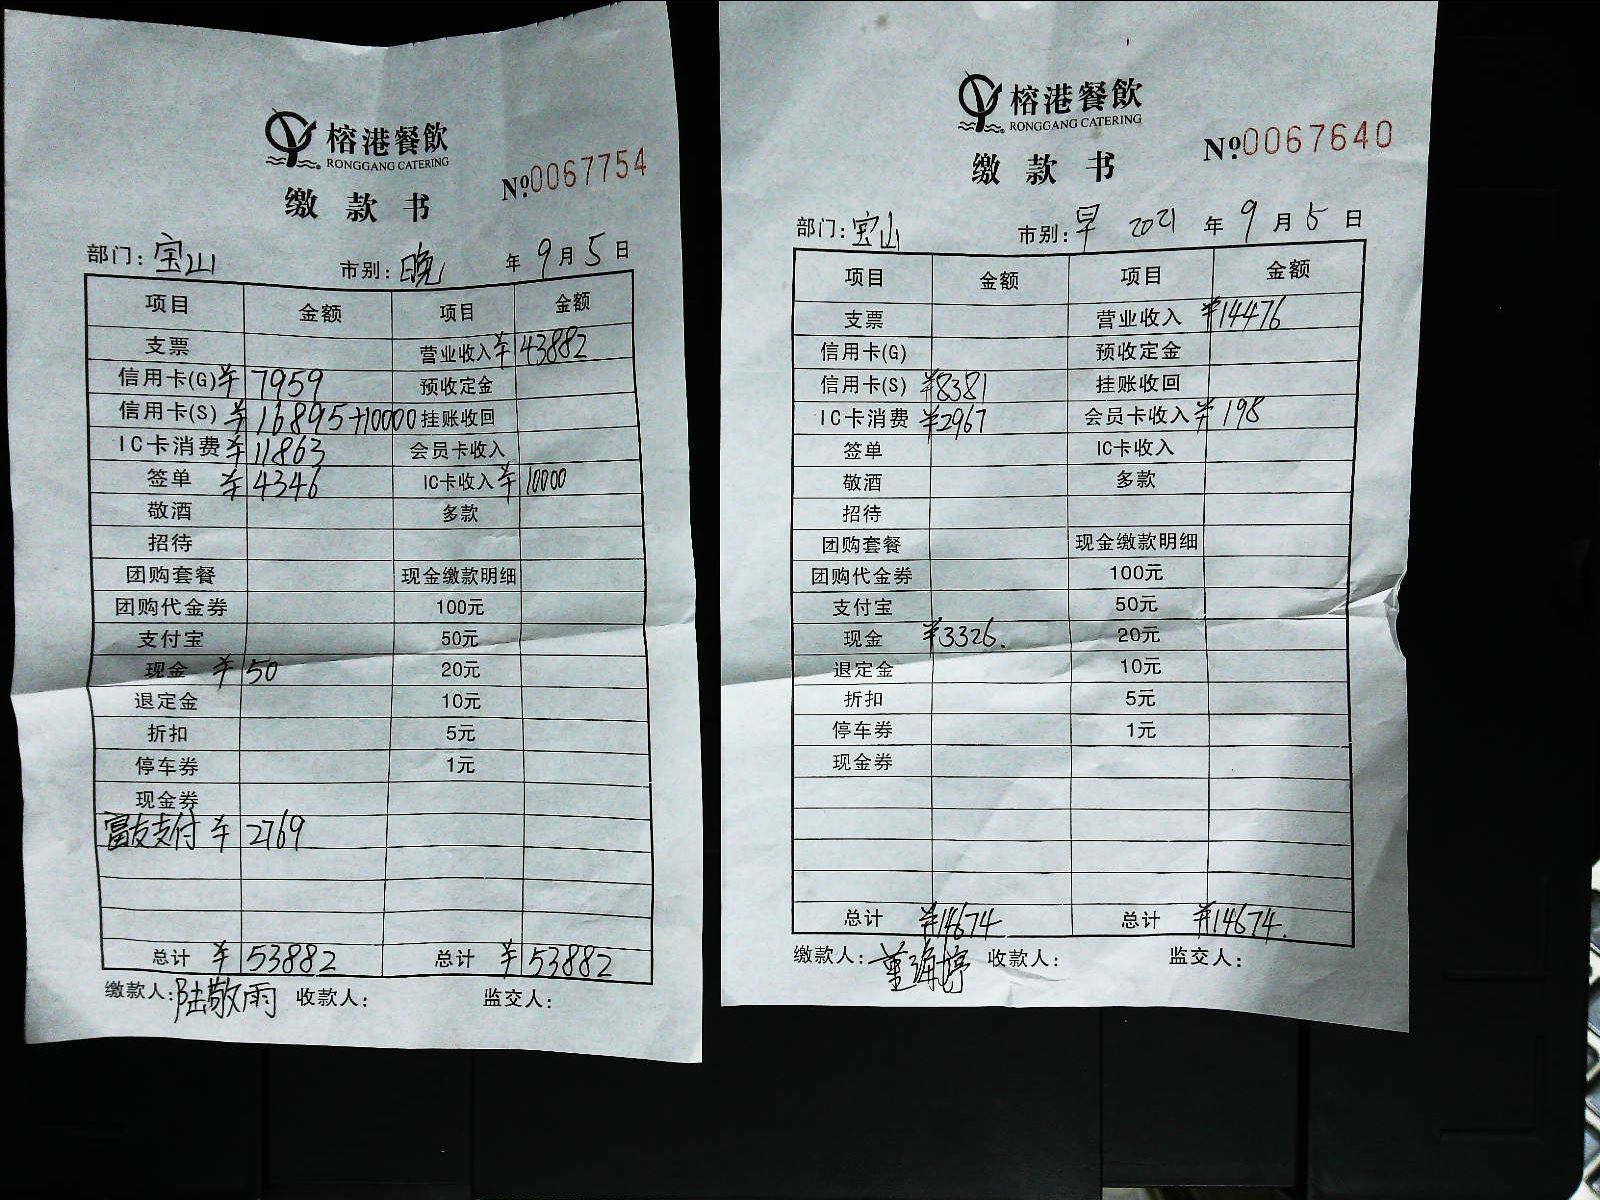 榕港餐飲
RONGGANG CATERING
缴款书
№0067754
部门：宝山 市别：晚 年 9 月 5 日
项目 金额 项目 金额
支票 营业收入 ¥43882
信用卡(G) ¥7959 预收定金
信用卡(S) ¥16895+10000 挂账收回
IC卡消费 ¥11863 会员卡收入
签单 ¥4346 IC卡收入 ¥10000
敬酒 多款
招待
团购套餐 现金缴款明细
团购代金券 100元
支付宝 50元
现金 ¥50 20元
退定金 10元
折扣 5元
停车券 1元
现金券
富友支付 ¥2769
总计 ¥53882 总计 ¥53882
缴款人：陆敬雨 收款人： 监交人：
榕港餐飲
RONGGANG CATERING
缴款书
№0067640
部门：宝山 市别：早 2021 年 9 月 5 日
项目 金额 项目 金额
支票 营业收入 ¥14476
信用卡(G) 预收定金
信用卡(S) ¥8381 挂账收回
IC卡消费 ¥2967 会员卡收入 ¥198
签单 IC卡收入
敬酒 多款
招待
团购套餐 现金缴款明细
团购代金券 100元
支付宝 50元
现金 ¥3326. 20元
退定金 10元
折扣 5元
停车券 1元
现金券
总计 ¥14674 总计 ¥14674.
缴款人：董海婷 收款人： 监交人：